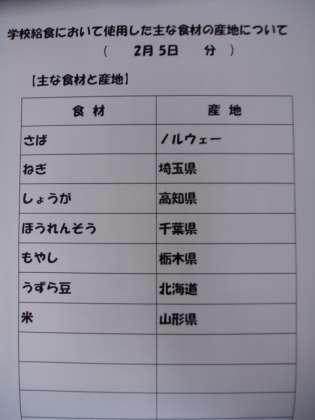 学校給食において使用した主な食材の産地について
(　2月 5日　分　)
【主な食材と産地】
食 材　産 地
さば　ノルウェー
ねぎ　埼玉県
しょうが　高知県
ほうれんそう　千葉県
もやし　栃木県
うずら豆　北海道
米　山形県